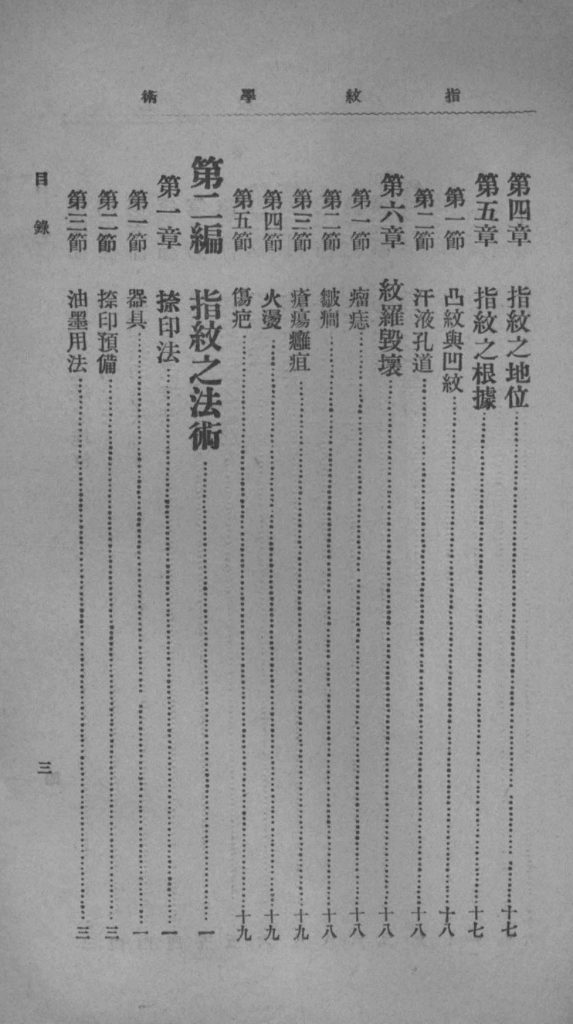 指紋學術
第四章 指紋之地位……十七
第五章 指紋之根據……十七
第一節 凸紋與凹紋……十八
第二節 汗液孔道……十八
第六章 紋羅毀壞……十八
第一節 瘤痣……十八
第二節 皺癇……十八
第三節 瘡瘍癰疽……十九
第四節 火燙……十九
第五節 傷疤……十九
第二編 指紋之法術……一
第一章 捺印法……一
第一節 器具……一
第二節 捺印預備……三
第三節 油墨用法……三
目錄
三